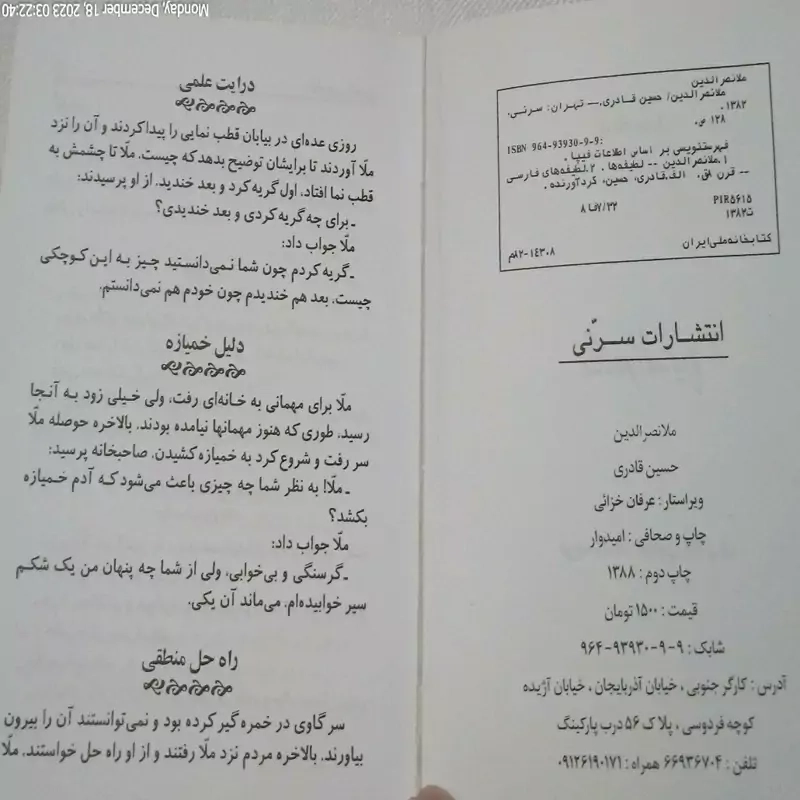 Monday, December 18, 2023 03:22:40
ملانصرالدین
ملانصرالدین/ حسین قادری.— تهران: سرنی،
۱۳۸۲.
۱۲۸ ص.
ISBN 964-93930-9-9:
فهرستنویسی بر اساس اطلاعات فیپا.
۱.ملانصرالدین -- لطیفه‌ها. ۲.لطیفه‌های فارسی
-- قرن ق. الف.قادری، حسین، گردآورنده.
۸فا۷/۲۲ PIR۵۶۱۵
ت۱۳۸۲
کتابخانه ملی ایران ۱۴۳۰۸-۸۲م
انتشارات سرّنی
ملانصرالدین
حسین قادری
ویراستار: عرفان خزائی
چاپ و صحافی: امیدوار
چاپ دوم: ۱۳۸۸
قیمت: ۱۵۰۰ تومان
شابک: ۹-۹-۹۳۹۳۰-۹۶۴
آدرس: کارگر جنوبی، خیابان آذربایجان، خیابان آژیده
کوچه فردوسی، پلاک ۵۶ درب پارکینگ
تلفن: ۶۶۹۳۶۷۰۴ همراه: ۰۹۱۲۶۱۹۰۱۷۱
درایت علمی
روزی عده‌ای در بیابان قطب نمایی را پیدا کردند و آن را نزد
ملّا آوردند تا برایشان توضیح بدهد که چیست. ملّا تا چشمش به
قطب نما افتاد، اول گریه کرد و بعد خندید. از او پرسیدند:
ـ برای چه گریه کردی و بعد خندیدی؟
ملّا جواب داد:
ـ گریه کردم چون شما نمی‌دانستید چیز به این کوچکی
چیست. بعد هم خندیدم چون خودم هم نمی‌دانستم.
دلیل خمیازه
ملّا برای مهمانی به خانه‌ای رفت، ولی خیلی زود به آنجا
رسید، طوری که هنوز مهمانها نیامده بودند. بالاخره حوصله ملّا
سر رفت و شروع کرد به خمیازه کشیدن. صاحبخانه پرسید:
ـ ملّا! به نظر شما چه چیزی باعث می‌شود که آدم خمیازه
بکشد؟
ملّا جواب داد:
ـ گرسنگی و بی‌خوابی، ولی از شما چه پنهان من یک شکم
سیر خوابیده‌ام. می‌ماند آن یکی.
راه حل منطقی
سر گاوی در خمره گیر کرده بود و نمی‌توانستند آن را بیرون
بیاورند. بالاخره مردم نزد ملّا رفتند و از او راه حل خواستند. ملّا